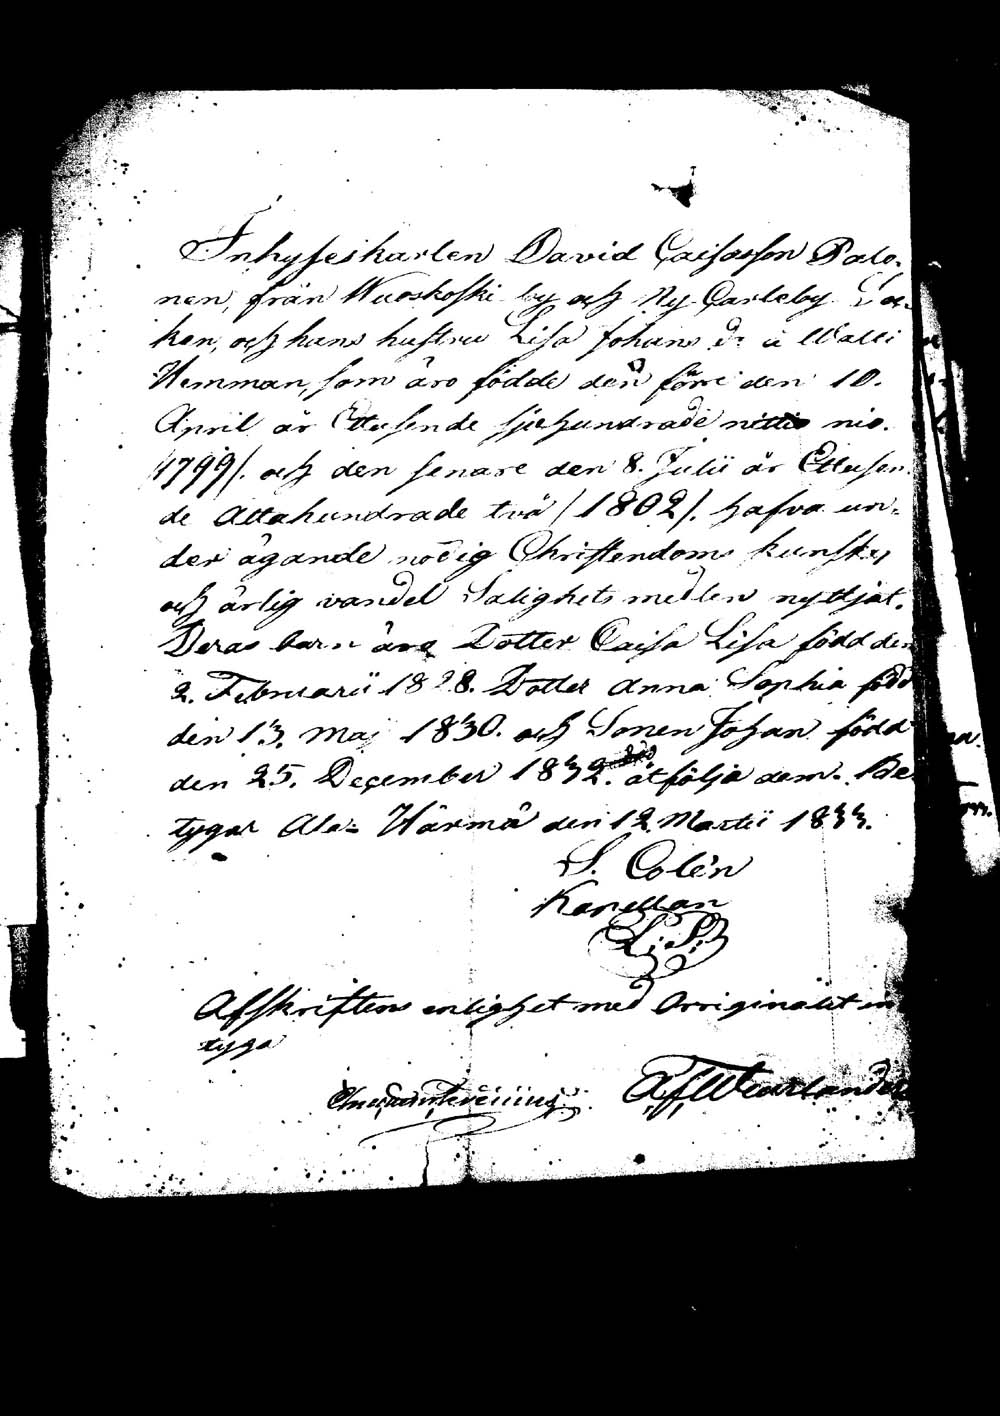 Inhyseskarlen David Caisasson Palo-
nen, från Wuoskoski by och Ny Carleby Soc-
ken, och hans hustru Lisa Johans d:r å Walli
Hemman, som äro födde den förre den 10.
April år Ettusende sjuhundrade nittio nio.
/1799/. och den senare den 8. Julii år Ettusen
de Attahundrade två /1802/. hafva un-
der ägande nödig Christendoms kunskap
och ärlig vandel Salighets medlen nyttjat.
Deras barn äro Dotter Caisa Lisa född den
2. Februarii 1828. Dotter Anna Sophia född
den 13. Maj 1830. och Sonen Johan född
den 25. December 1832. åtfölja dem. Be-
tygar Ala-Härmä den 12 Martii 1833.
S. Colén
Kapellan
L.S.
Afskriftens enlighet med Orriginalet
tyga